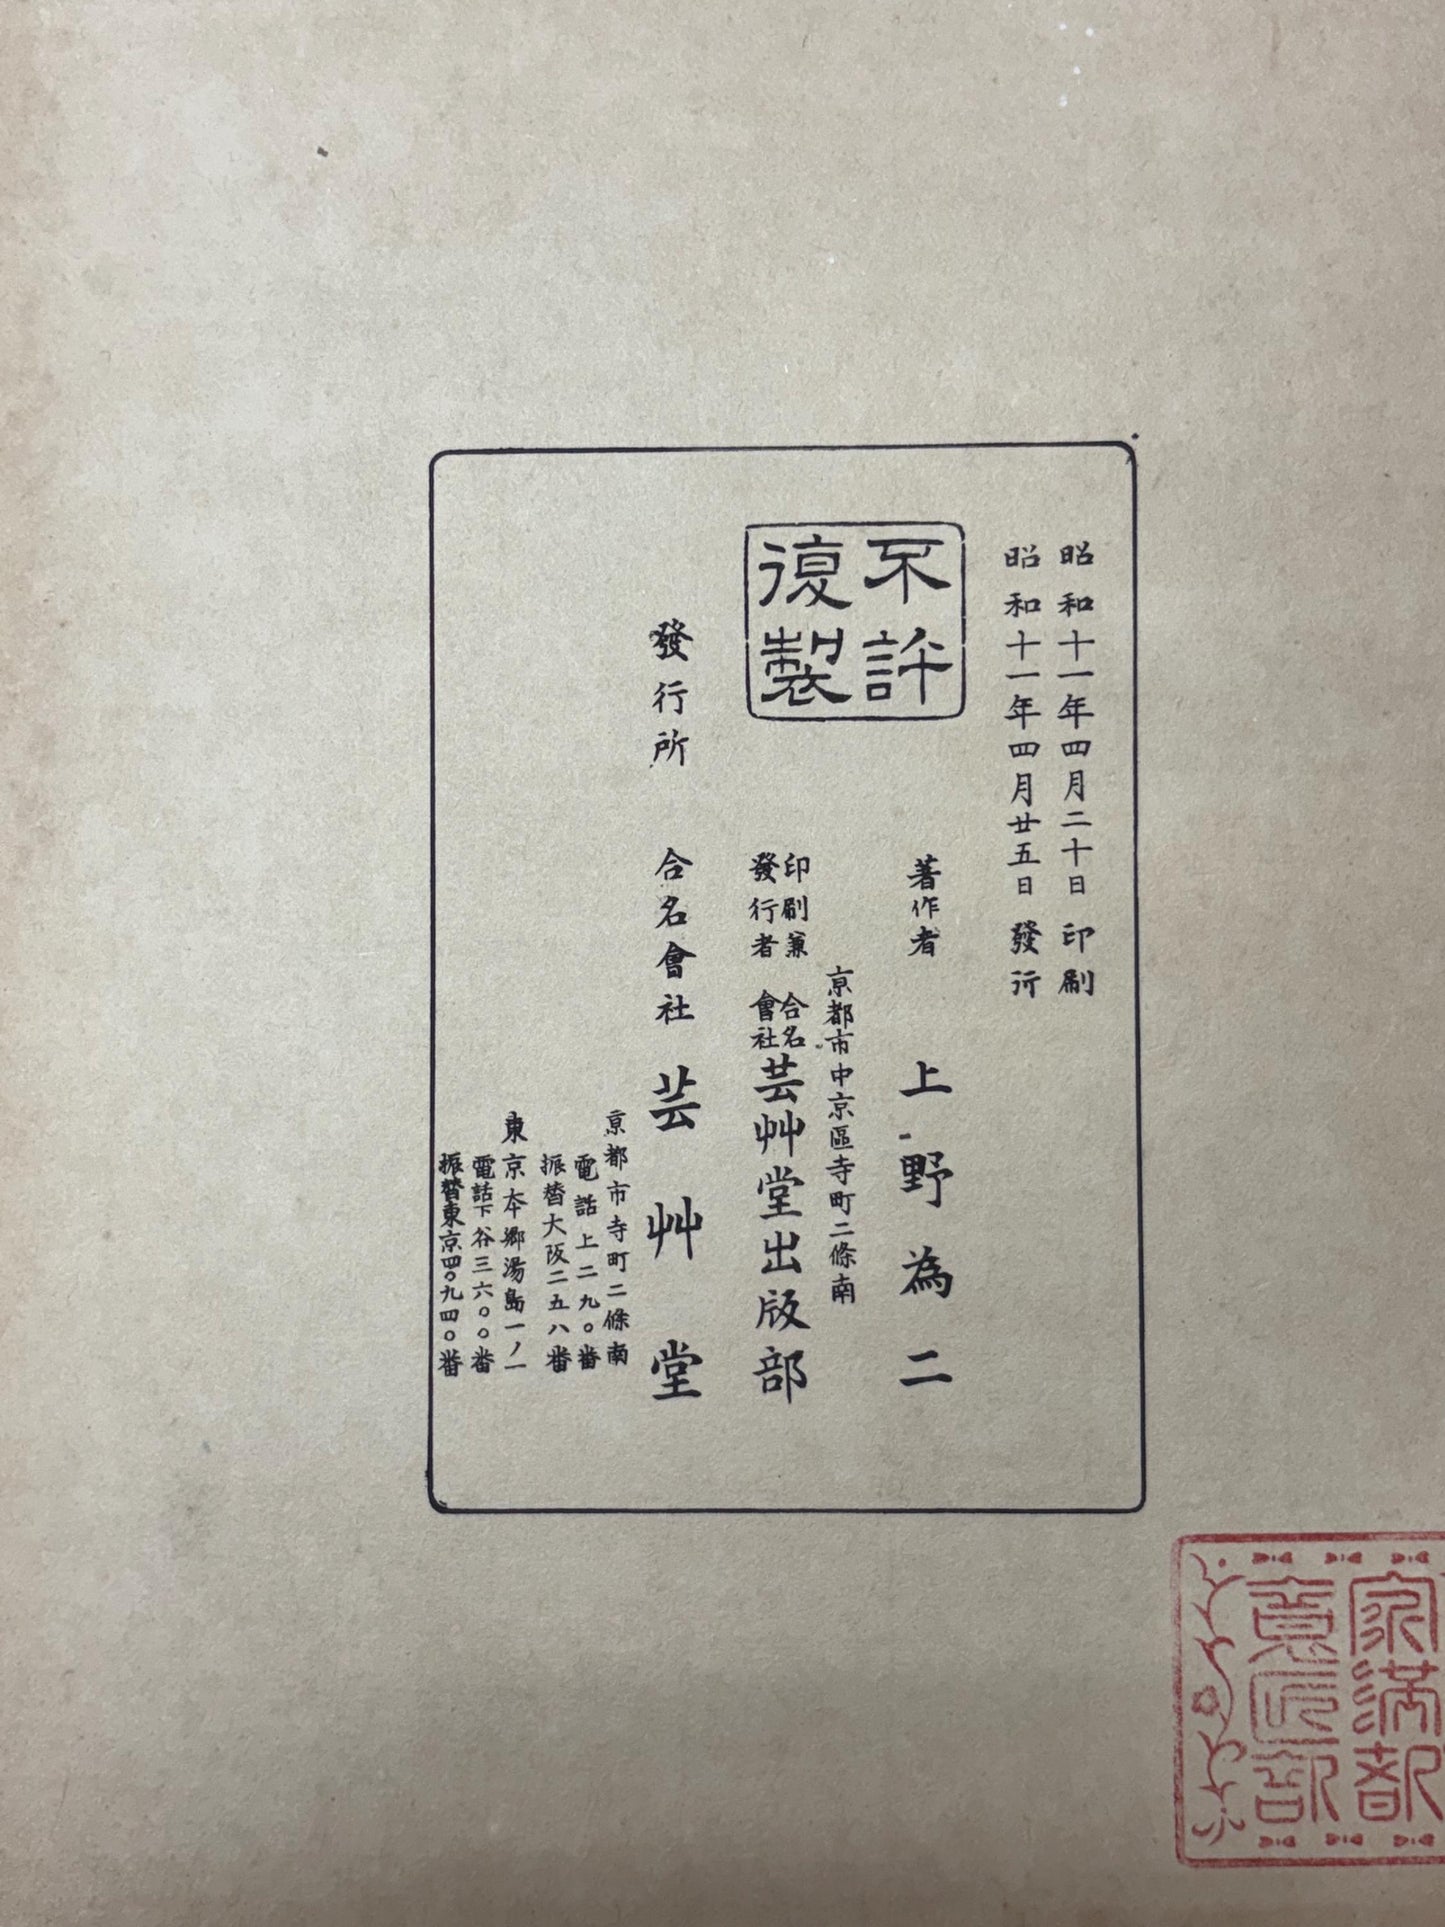 昭和十一年四月二十日印刷
昭和十一年四月廿五日發行
不許
復製
著作者 上野為二
京都市中京區寺町二條南
印刷兼
發行者
合名
會社
芸艸堂出版部
發行所 合名會社 芸艸堂
京都市寺町二條南
電話上二九〇番
振替大阪二五八番
東京本郷湯島一ノ一
電話下谷三六〇〇番
振替東京四〇九四〇番
家満都
意匠部